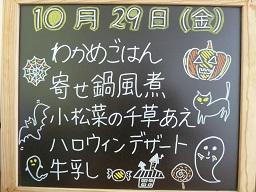 10月29日(金)
わかめごはん
寄せ鍋風煮
小松菜の千草あえ
ハロウィンデザート
牛乳